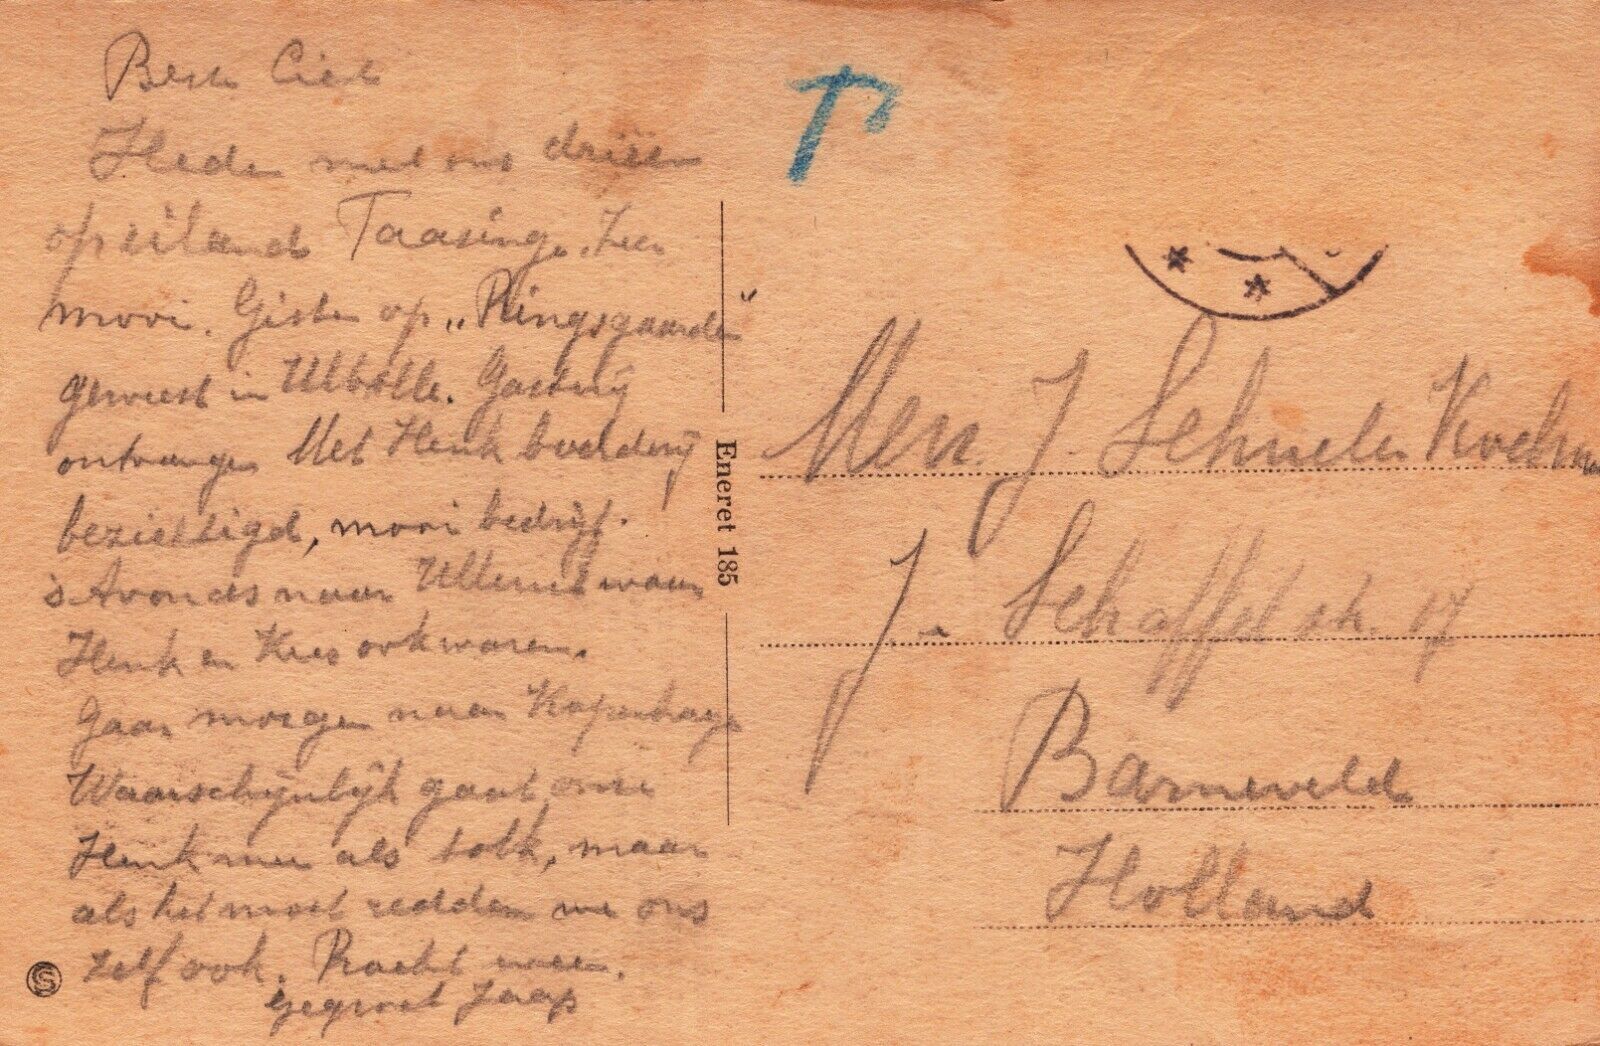 Beste Ciel
Heden met ons drieën
op eiland Taasinge. Zeer
mooi. Gister op „Ringsgaarden"
geweest in Ulbölle. Gastvrij
ontvangen Met Henk boerderij
bezichtigd, mooi bedrijf.
's Avonds naar waar
Henk en Kees ook waren.
Gaan morgen naar Kopenhage
Waarschijnlijk gaat onze
Henk mee als tolk, maar
als het moet redden we ons
zelf ook. Pracht weer.
gegroet Jaap
T
Eneret 185
Mevr. J. Schueler
J. Schaffelstr. 17
Barneveld
Holland